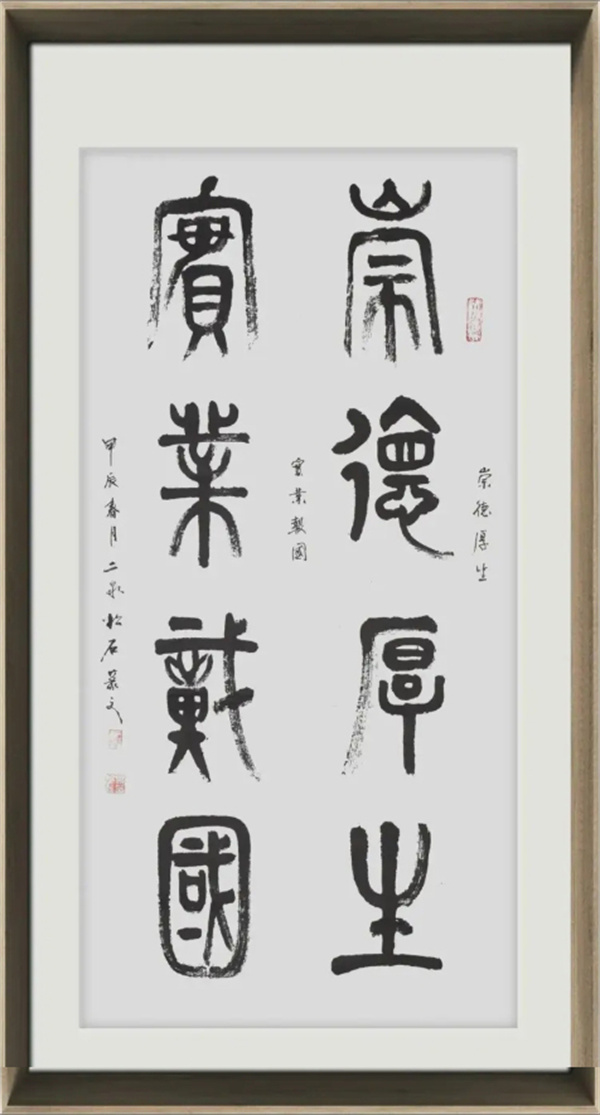 崇德厚生
崇德厚生
實業國
實業戴國
甲辰春月二泉松石景文